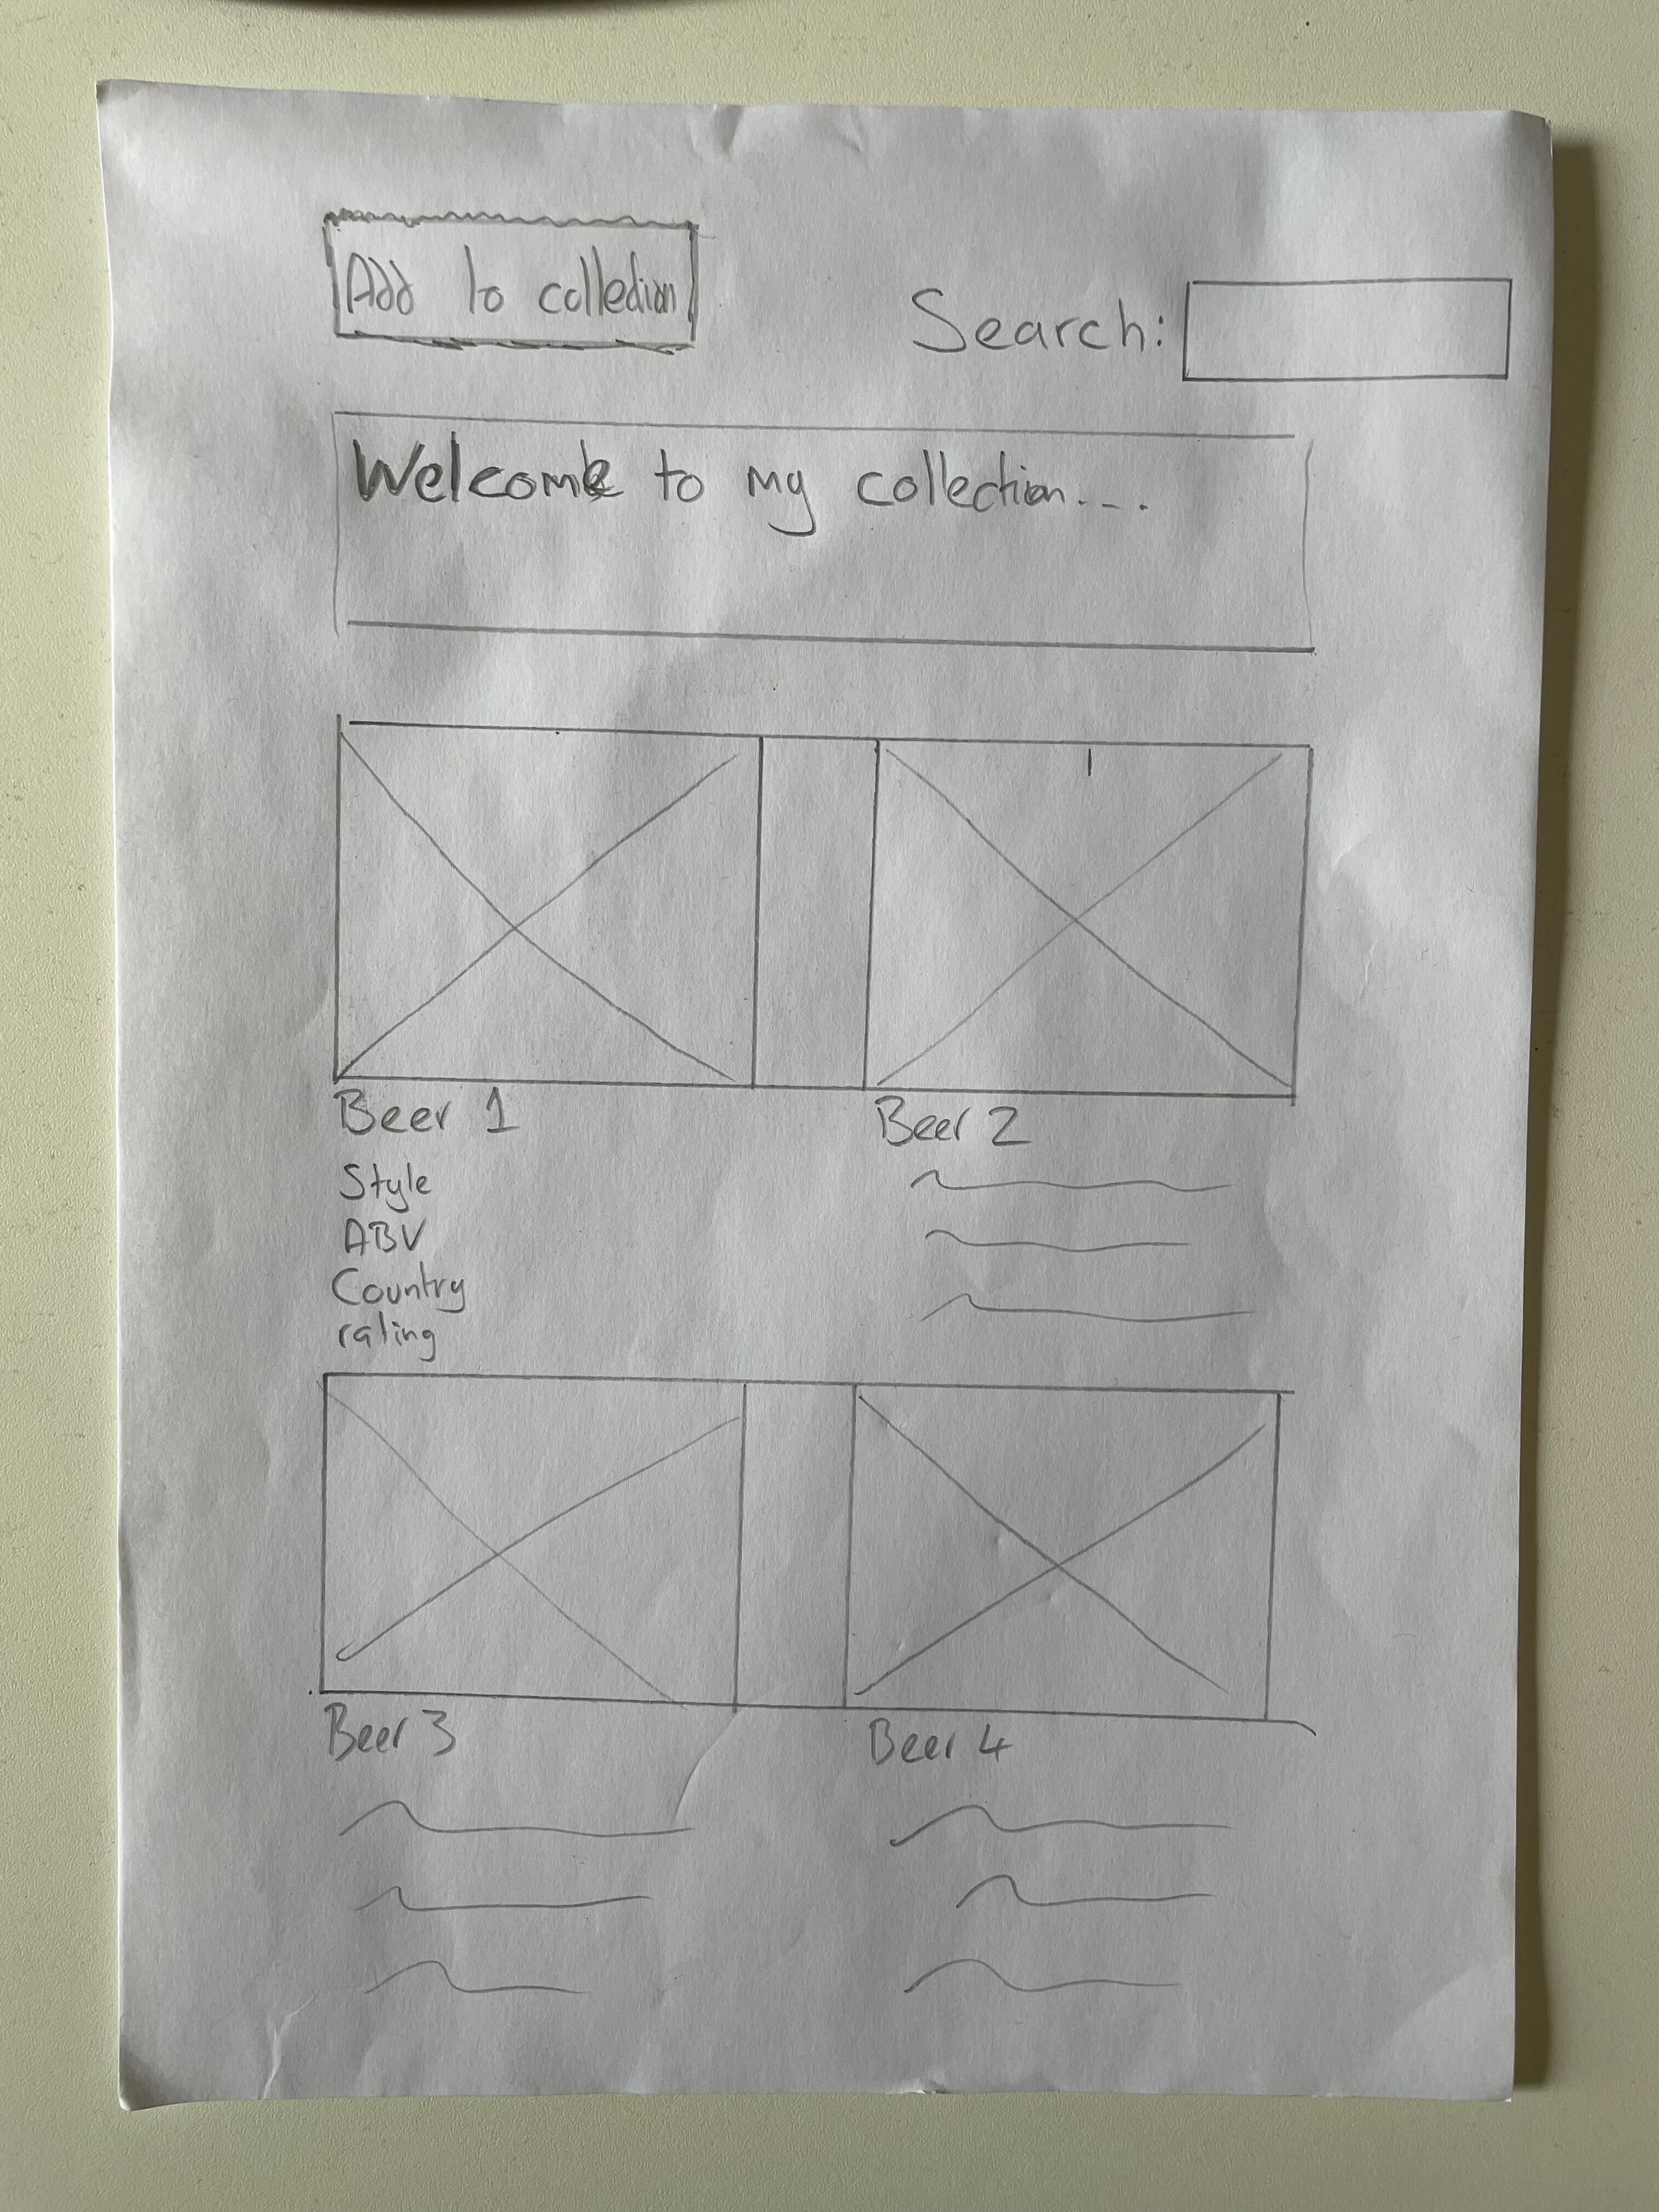 Add to collection
Search:
Welcome to my collection...
Beer 1
Beer 2
Style
ABV
Country
rating
Beer 3
Beer 4